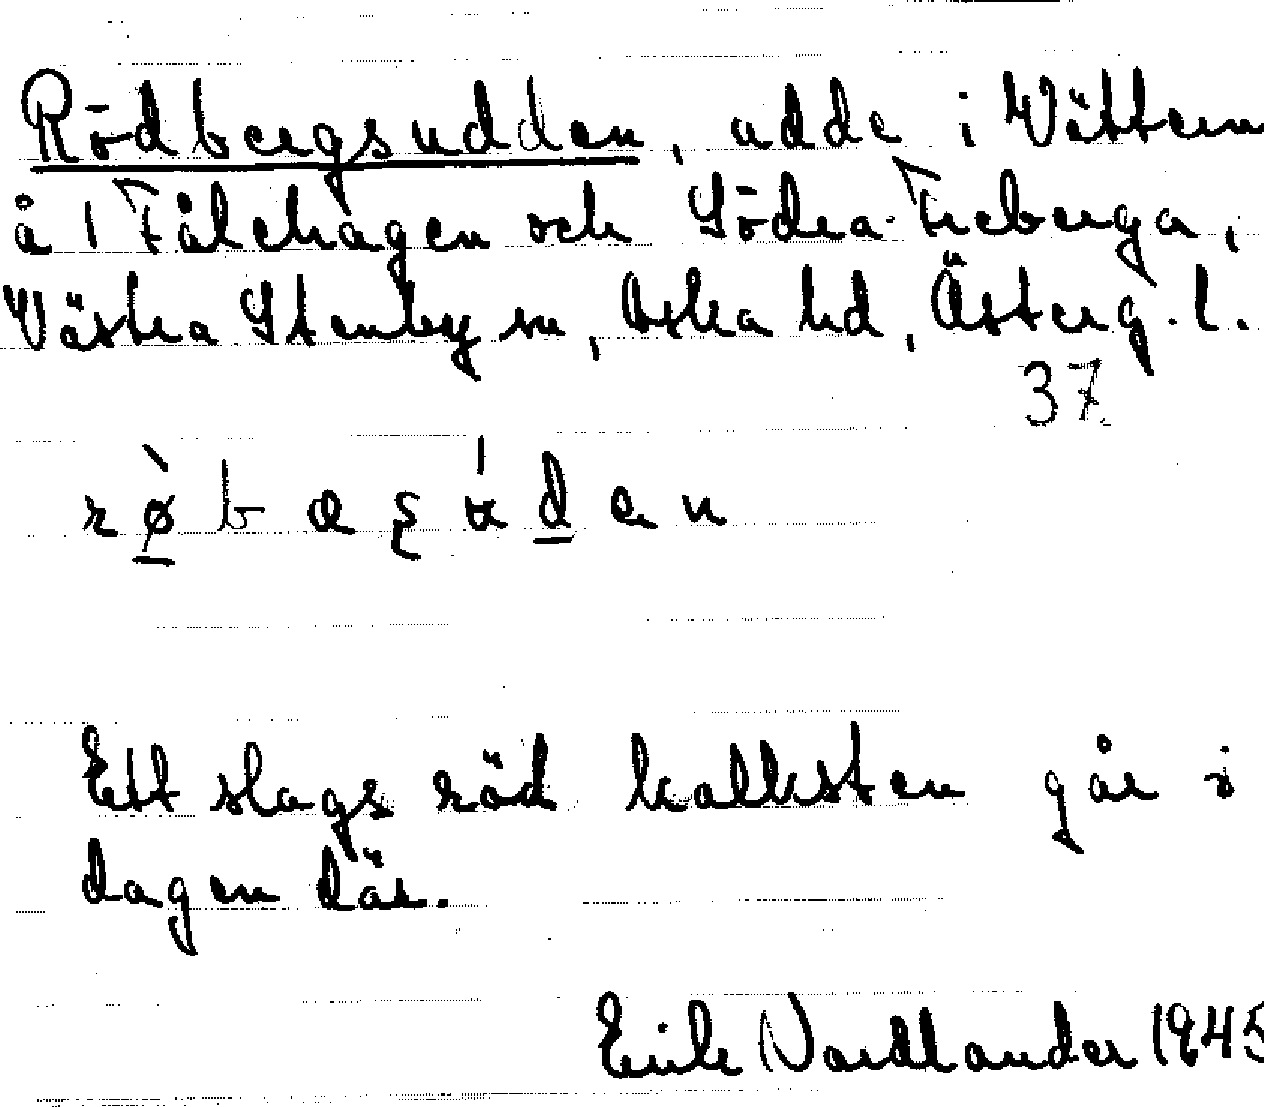 Rödbergsudden, udde i Vättern
å 1 Fålehagen och Södra Freberga,
Västra Stenby sn, Aska hd, Österg. l.
37
Ett slags röd kalksten går i
dagen där.
Erik Nordlander 1945